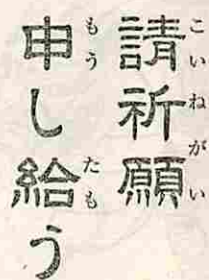 請祈願
こいねがい
申し給う
もう たも